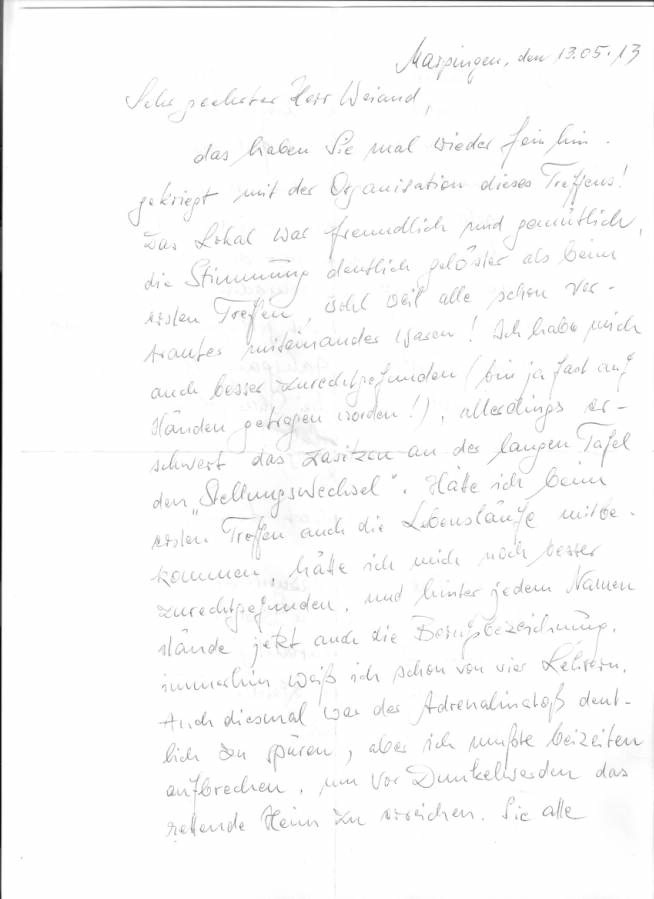 Marpingen, den 13.05.13
Sehr geehrter Herr Weiand,
das haben Sie mal wieder fein hin-
gekriegt mit der Organisation dieses Treffens!
Das Lokal war freundlich und gemütlich,
die Stimmung deutlich gelöster als beim
ersten Treffen, wohl weil alle schon ver-
trauter miteinander waren! Ich habe mich
auch besser zurechtgefunden (bin ja fast auf
Händen getragen worden!), allerdings er-
schwert das Zusitzen an der langen Tafel
den „Stellungswechsel". Hätte ich beim
ersten Treffen auch die Lebensläufe mitbe-
kommen, hätte ich mich noch besser
zurechtgefunden, und hinter jedem Namen
stände jetzt auch die Berufsbezeichnung,
immerhin weiß ich schon von vier Lehrern.
Auch diesmal war der Adrenalinstoß deut-
lich zu spüren, aber ich mußte beizeiten
aufbrechen, um vor Dunkelwerden das
rettende Heim zu erreichen. Sie alle